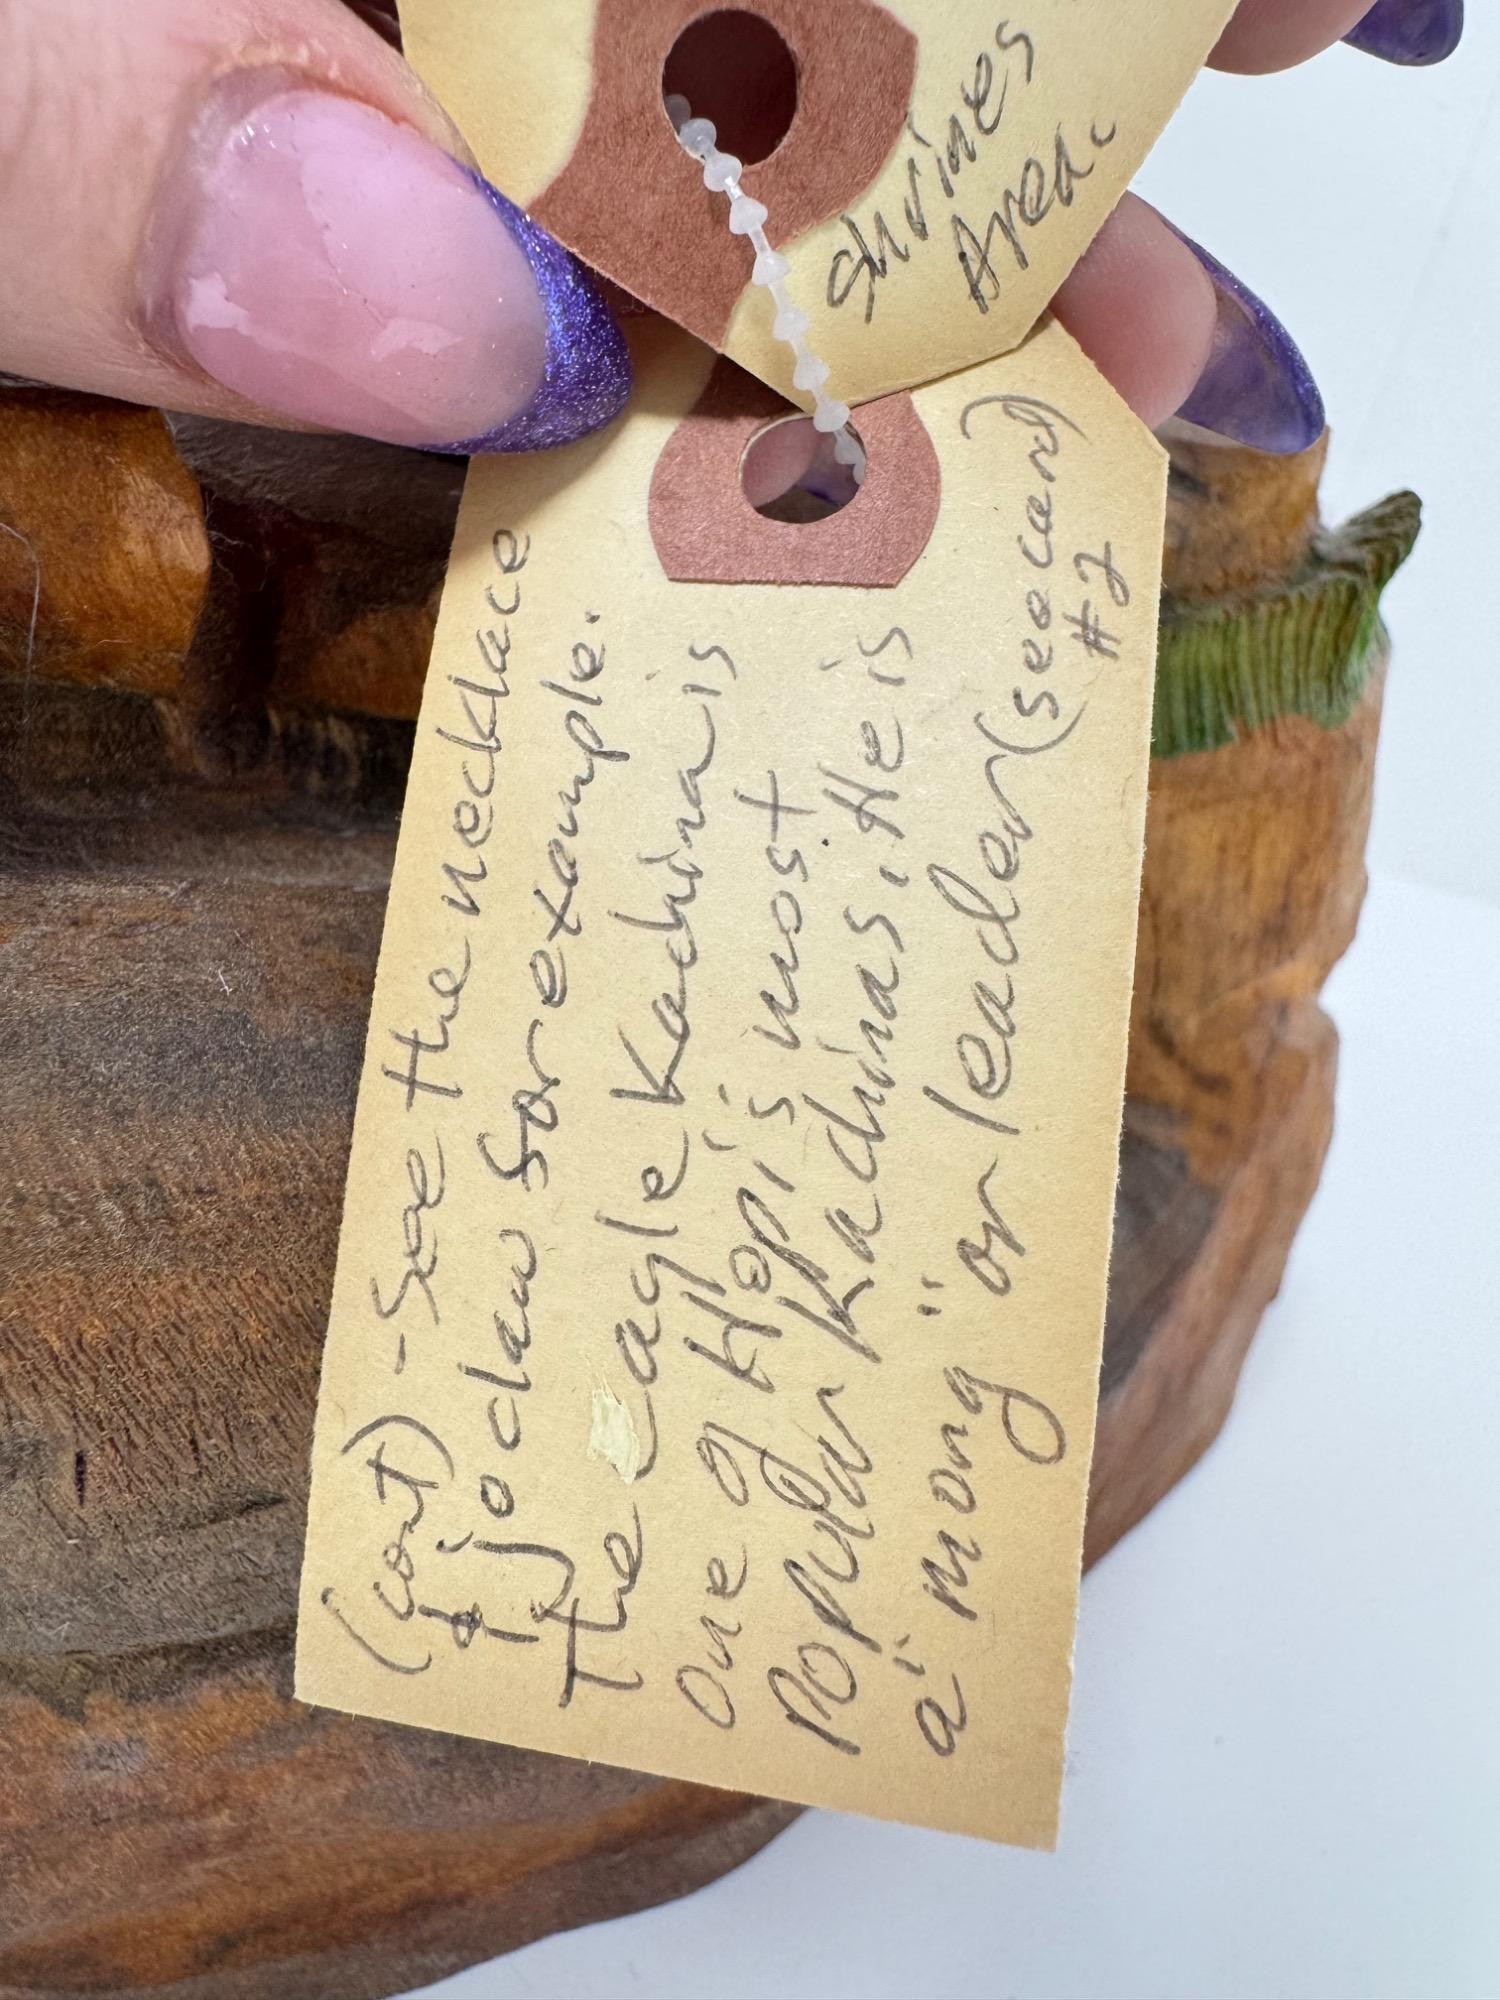 Shrines
Area.
(cont) - See the necklace
& jo claw for example.
The eagle Kachina is
one of Hopi's most
Popular Kachinas. He is
a "mong" or leader (see card)
#2